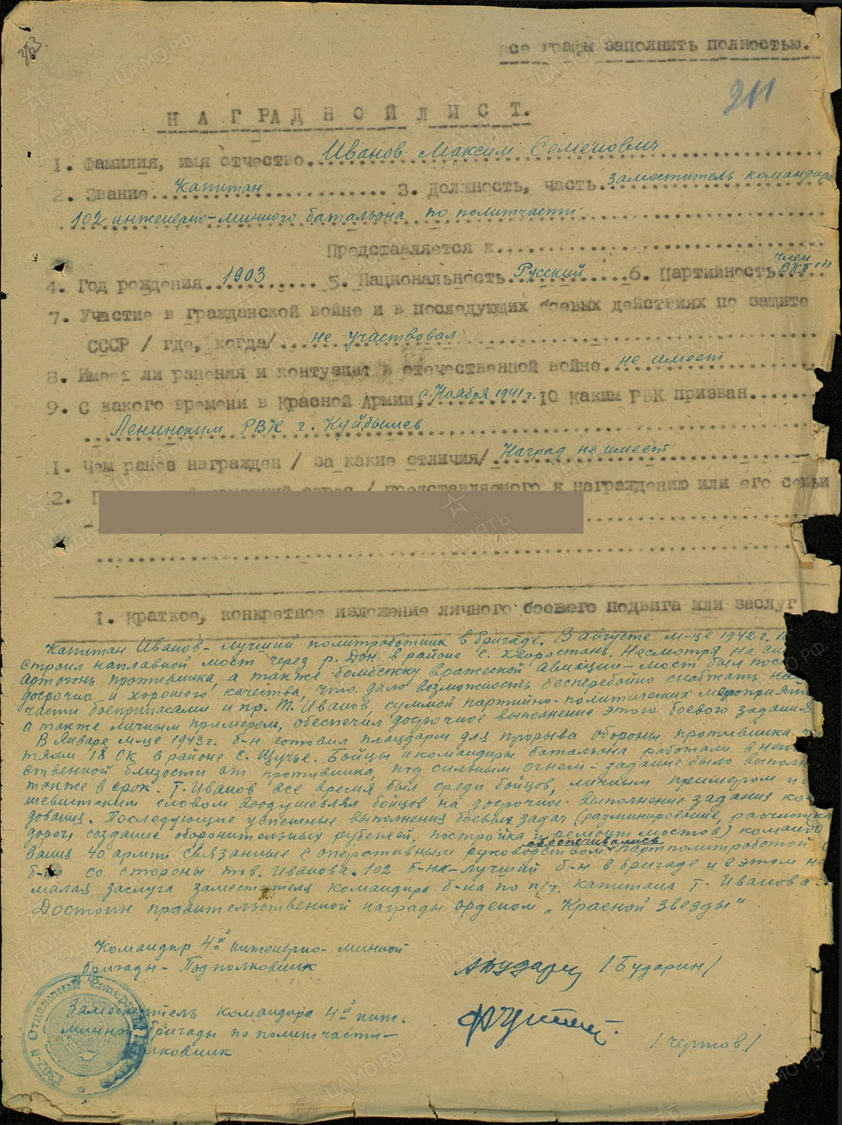 313.
все графы заполнить полностью.
211
НАГРАДНОЙ ЛИСТ.
1. Фамилия, имя отчество Иванов Максим Семенович
2. Звание Капитан 3. Должность, часть Заместитель командира
102 инженерно-минного батальона по политчасти
Представляется к
4. Год рождения 1903 5. Национальность Русский 6. Партийность член ВКП(б)
7. Участие в гражданской войне и в последующих боевых действиях по защите
СССР / где, когда/ не участвовал
8. Имеет ли ранения и контузии в отечественной войне не имеет
9. С какого времени в Красной Армии с Ноября 1941 г. 10 Каким РВК призван
Ленинским РВК г. Куйбышев
11. Чем ранее награжден / за какие отличия/ Наград не имеет
2. / представляемого к награждению или его семьи
1. Краткое, конкретное изложение личного боевого подвига или заслуг
Капитан Иванов - лучший политработник в бригаде. В августе м-це 1942 г.
строил наплавной мост через р. Дон в районе с. Хворостань. Несмотря на
артогонь противника, а также бомбежку вражеской авиации - мост был
досрочно и хорошего качества, что дало возможность бесперебойно снабжать
части боеприпасами и пр. Т. Иванов суммой партийно-политических мероприят
а также личным примером, обеспечил досрочное выполнение этого боевого задания
В Январе м-це 1943 г. б-н готовил плацдарм для прорыва обороны противника
тями 18 СК в районе с. Щучье. Бойцы и командиры батальона работали в неп
ственной близости от противника, под сильным огнем - задание было выполн
также в срок. Т. Иванов все время был среди бойцов, личным примером и
шевитским словом воодушевлял бойцов на досрочное выполнение задания ко
дования. Последующие успешные выполнения боевых задач (разминирование, расчистка
дорог, создание оборонительных рубежей, постройка и ремонт мостов) командо
вания 40 армии связанные с оперативным руководством обеспечивались партполитработой
б-не со стороны тов. Иванова. 102 б-н - лучший б-н в бригаде и в этом не
малая заслуга заместителя командира б-на по п/ч. капитана т. Иванова.
Достоин правительственной награды орденом „Красной Звезды"
Командир 4й инженерно-минной
бригады - Подполковник /Бударин/
Заместитель командира 4й инж.
минной бригады по политчасти -
/Чертов/